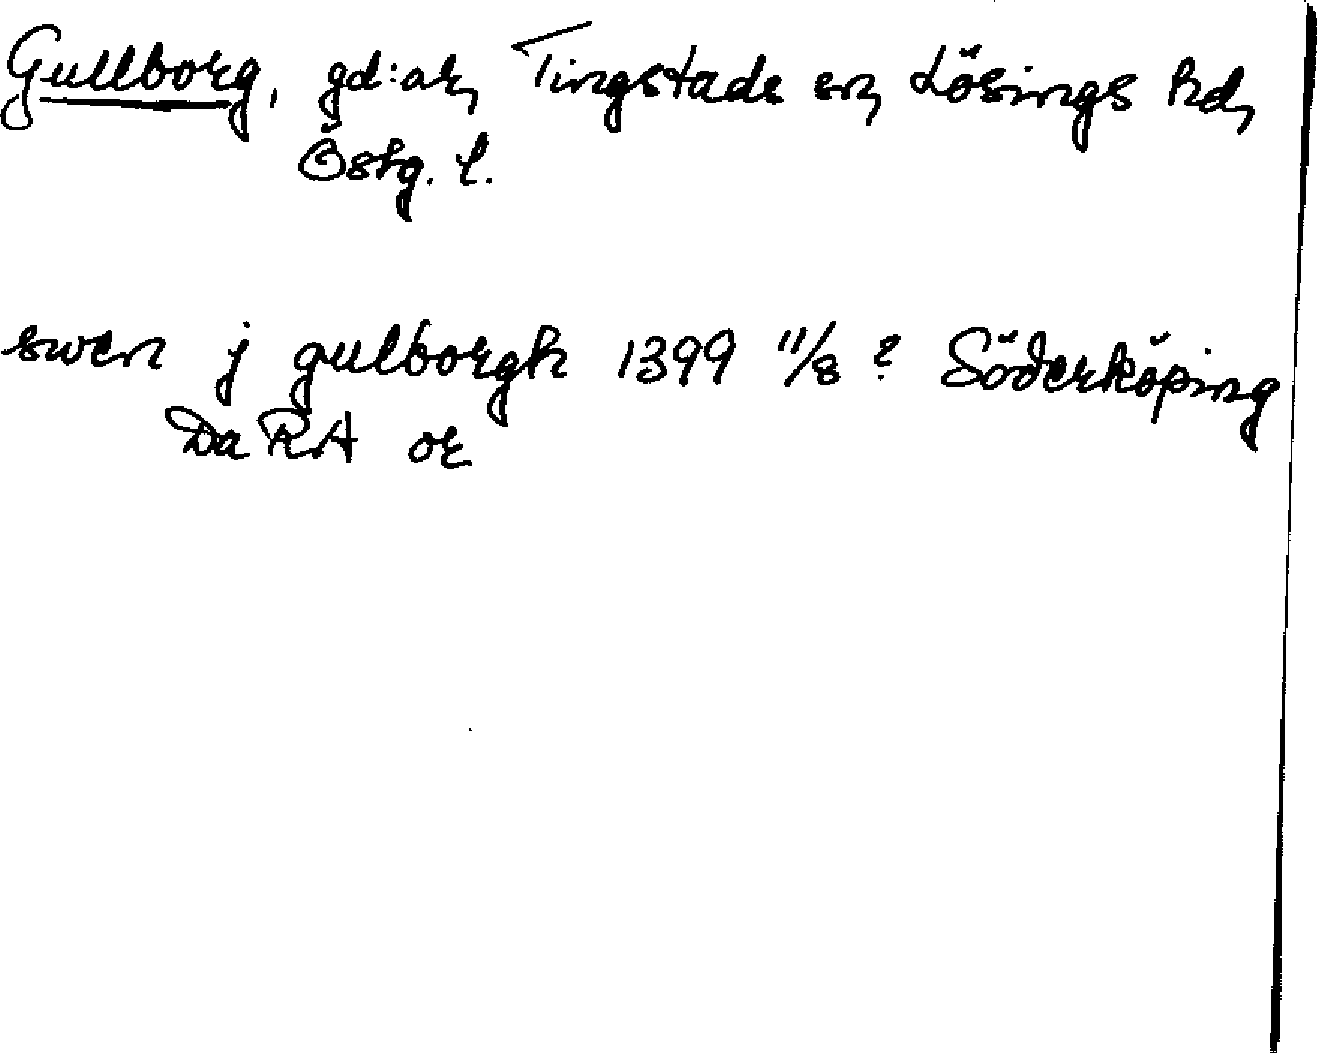 Gullborg, gd:ar, Tingstads sn, Lösings hd,
Östg. l.
swen j gulborgh 1399 11/8 ? Söderköping
Da RA or